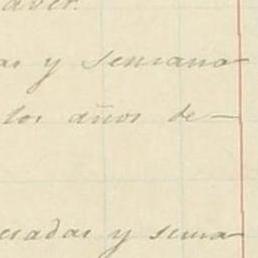 aver.
as y semana
los años de—
esadas y sema